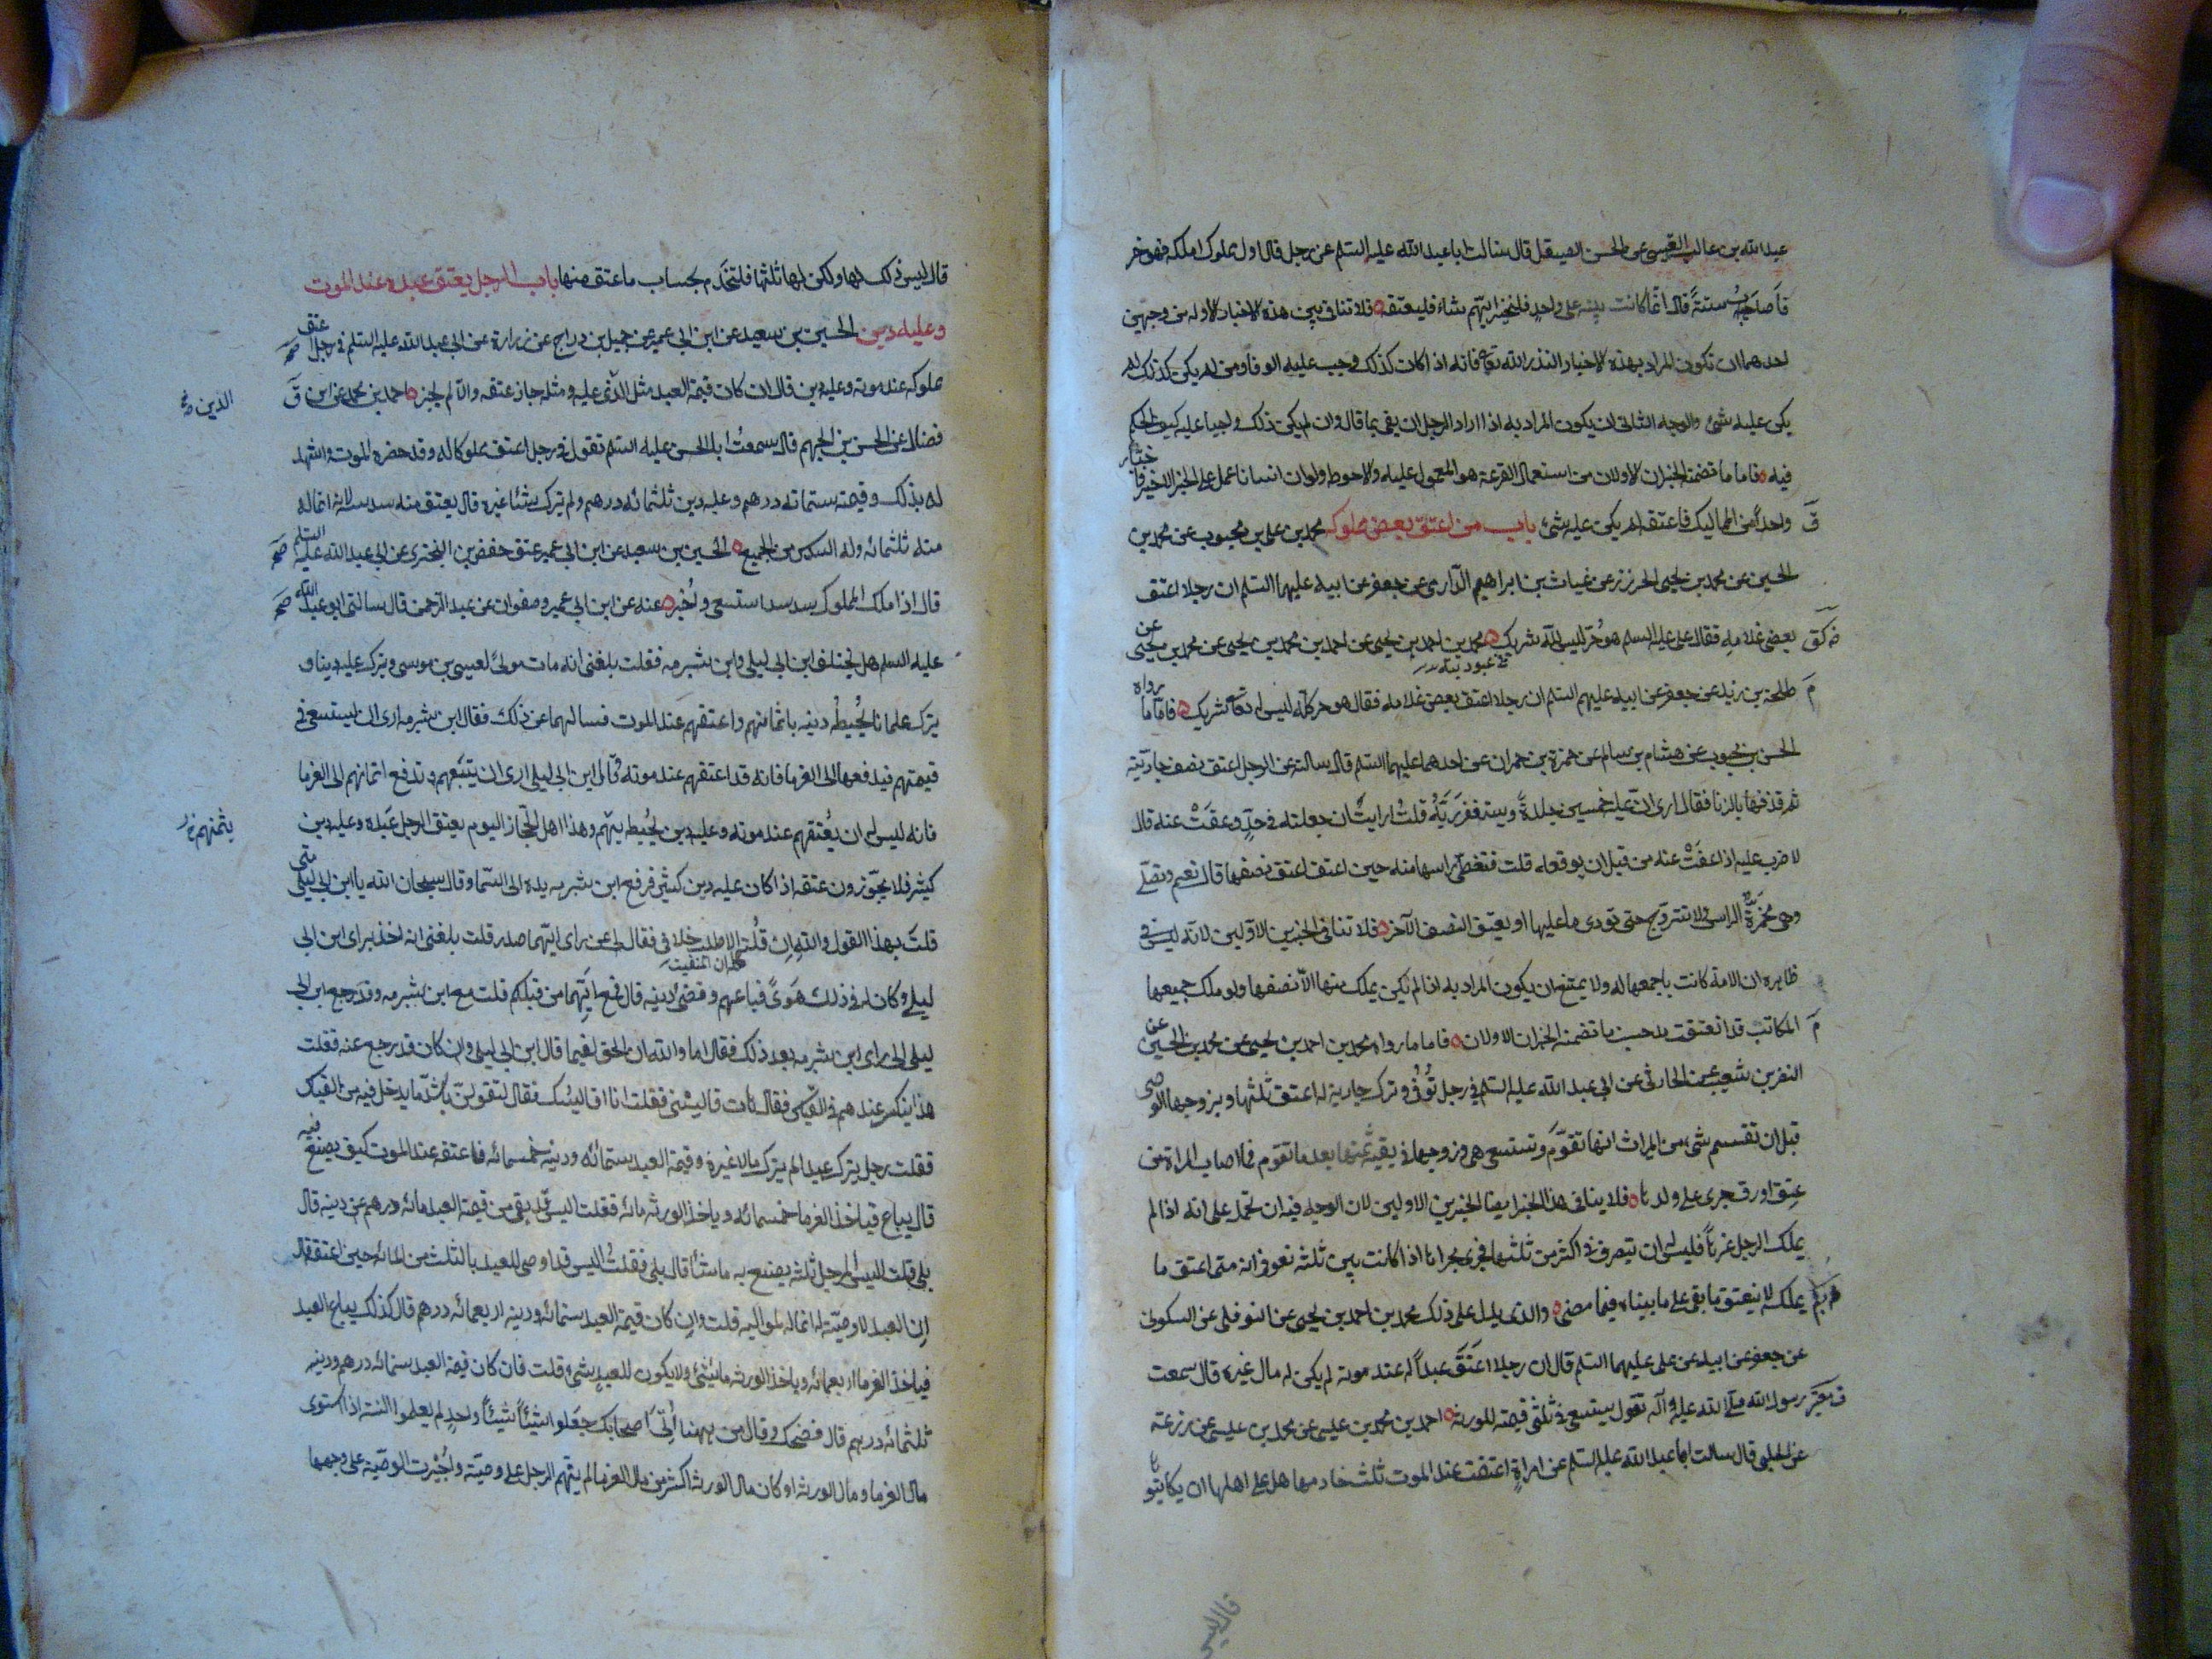 عبدالله بن غالب القيسي عن الحسن الصيقل قال سالت اباعبدالله عليه السلم عن رجل قال اول مملوك املكه فهو حر
فاصاب ستة قال انما كانت نيته على واحد فليختر ايهم شاء فليعتقه فلا تنافي بين هذه الاخبار الاوله من وجهين
احدهما ان تكون المراد بهذه الاخبار النذر لله تعا فانه اذا كان كذلك وجب عليه الوفا ومن لم يكن كذلك لم
يكن عليه شئ والوجه الثاني ان يكون المراد به اذا اراد الرجل ان يفي بما قال وان لم يكن ذلك واجبا عليه كيف الحكم
فيه فاما ما تضمنه الخبران الاولان من استعمال القرعة هو المعمول عليه والاحوط ولو ان انسانا عمل على الخبر الاخير فاختار
واحداً من المماليك فاعتقه لم يكن عليه شئ باب من اعتق بعض مملوكه محمد بن علي بن محبوب عن محمد بن
الحسين عن محمد بن يحيى الخزاز عن غياث بن ابراهيم الداري عن جعفر عن ابيه عليهما السلم ان رجلا اعتق
بعض غلامه فقال علي عليه السلم هو حر ليس لله شريك محمد بن احمد بن يحيى عن احمد بن محمد بن يحيى عن محمد بن يحيى عن
طلحة بن زيد عن جعفر عن ابيه عليهم السلم ان رجلا اعتق بعض غلامه فقال هو حر كله ليس لله تعا شريك فاما ما رواه
الحسن بن محبوب عن هشام بن سالم عن حمزة بن حمران عن احدهما عليهما السلم قال سالته عن الرجل اعتق نصف جاريته
ثم قذفها بالزنا فقال ارى ان عليه خمسين جلدة ويستغفر ربه قلت ارايت ان جعلته في حل وعفت عنه قال
لا ضرب عليه اذا عفت عنه من قبل ان يوقعه قلت فتغطي راسها منه حين اعتق نصفها قال نعم وتصلي
وهي مخمرة الراس ولا تتزوج حتى تودى ما عليها او يعتق النصف الآخر فلا تنافي الخبرين الاولين لانه ليس في
ظاهره ان الامة كانت باجمعها له ولا يمتنع ان يكون المراد به اذا لم يكن يملك منها الا نصفها ولو ملك جميعها
المكاتب قد انعتقت حسب ما تضمنه الخبران الاولان فاما ما رواه محمد بن احمد بن يحيى عن محمد بن الحسين عن
النضر بن شعيب عن الحارثي عن ابي عبد الله عليه السلم في رجل توفي وترك جارية له اعتق ثلثها وتزوجها الوصي
قبل ان تقسم شئ من الميراث انها تقوم وتستسعى هي وزوجها في بقية ثمنها بعد ما تقوم فما اصاب المراة من
عتق او رق جرى على ولدها فلا ينافي هذا الخبر ايضا الخبرين الاولين لان الوجه فيه ان نحمله على انه اذا لم
يملك الرجل غيرها فليس له ان يتصرف في اكثر من ثلثها فجرى مجراها اذا كانت بين ثلثه نفر في انه متى اعتق ما
يملك لا ينعتق ما بقي على ما بيناه فيما مضى والذي يدل على ذلك محمد بن احمد بن يحيى عن النوفلي عن السكوني
عن جعفر عن ابيه عن علي عليهما السلم قال ان رجلا اعتق عبداً له عند موته لم يكن له مال غيره قال سمعت
رسول الله صلى الله عليه وآله يقول يستسعى في ثلثي قيمته للورثة احمد بن محمد بن عيسى عن محمد بن عيسى عن زرعة
عن الحلبي قال سالت ابا عبد الله عليه السلم عن امراة اعتقت عند الموت ثلث خادمها هل على اهلها ان يكاتبوها
قال ليس
قال ليس ذلك لها ولكن لها ثلثها فلتخدم بحساب ما عتق منها باب الرجل يعتق عبده عند الموت
وعليه دين الحسين بن سعيد عن ابن ابي عمير عن جميل بن دراج عن زرارة عن ابي عبد الله عليه السلم في رجل عتق
مملوكه عند موته وعليه دين قال ان كان قيمة العبد مثل الذي عليه ومثله جاز عتقه والا لم يجز احمد بن محمد عن ابن
فضال عن الحسن بن الجهم قال سمعت ابا الحسن عليه السلم يقول في رجل اعتق مملوكا له وقد حضره الموت واشهد
له بذلك وقيمته ستمائه درهم وعليه دين ثلثمائه درهم ولم يترك شئا غيره قال يعتق منه سدسه لانه انما له
منه ثلثمائه وله السدس من الجميع الحسين بن سعيد عن ابن ابي عمير عن حفص بن البختري عن ابي عبد الله عليه السلم
قال اذا ملك المملوك سدسه استسعى واجبر عنه عن ابن ابي عمير وصفوان عن عبد الرحمن قال سالني ابو عبد الله
عليه السلم هل يختلف ابن ابي ليلى وابن شبرمه فقلت بلغني انه مات مولى لعيسى بن موسى وترك عليه دينا و
يترك غلمانا يحيط دينه باثمانهم واعتقهم عند الموت فسالهما عن ذلك فقال ابن شبرمه ارى ان يستسعى في
قيمتهم فيدفعها الى الغرما فانه قد اعتقهم عند موته قال ابن ابي ليلى ارى ان يبيعهم وتدفع اثمانهم الى الغرما
فانه ليس له ان يعتقهم عند موته وعليه دين يحيط بهم وهذا اهل الحجاز اليوم يعتق الرجل عبده وعليه دين
كثير فلا يجوزون عتقه اذا كان عليه دين كثير فرفع ابن شبرمه يده الى السما وقال سبحان الله يا ابن ابي ليلى متى
قلت بهذا القول والله ان قلته الا طلب خلافي فقال لي عن راى ايهما صدر قلت بلغني انه اخذ براى ابن ابي
ليلى وكان له في ذلك هوى فباعهم وقضى دينه قال فمع ايهما من قبلكم قلت مع ابن شبرمه وقد رجع ابن ابي
ليلى الى راى ابن شبرمه بعد ذلك فقال اما والله ان الحق لفيما قال ابن ابي ليلى وان كان قد رجع عنه فقلت
هذا ينكسر عندهم في القياس فقال هات قايسني فقلت انا اقايسك فقال لتقولن باشد ما يدخل فيه من القياس
فقلت رجل يترك عبدا لم يترك مالا غيره وقيمة العبد ستمائه ودينه خمسمائه فاعتقه عند الموت كيف يصنع فيه
قال يباع فياخذ الغرما خمسمائه وياخذ الورثه مائه فقلت اليس قد بقي من قيمة العبد مائه درهم عن دينه قال
بلى قلت اليس للرجل ثلثه يصنع به ما شأ قال بلى فقلت اليس قد اوصى للعبد بالثلث من المائه حين اعتقه قال
ان العبد لا وصية له انما له لمواليه قلت وان كان قيمة العبد ستمائه ودينه اربعمائه درهم قال كذلك يباع العبد
فياخذ الغرما اربعمائه وياخذ الورثه مائتين ولا يكون للعبد شئ قلت فان كان قيمة العبد ستمائه درهم ودينه
ثلثمائه درهم قال فضحك وقال من ههنا اتى اصحابك جعلوا اشيأ شيئاً واحد لم يعلموا السنه اذا استوى
مال الغرما ومال الورثه او كان مال الورثه اكثر من مال الغرما لم يتهم الرجل على وصيته واجيزت الوصية على وجهها